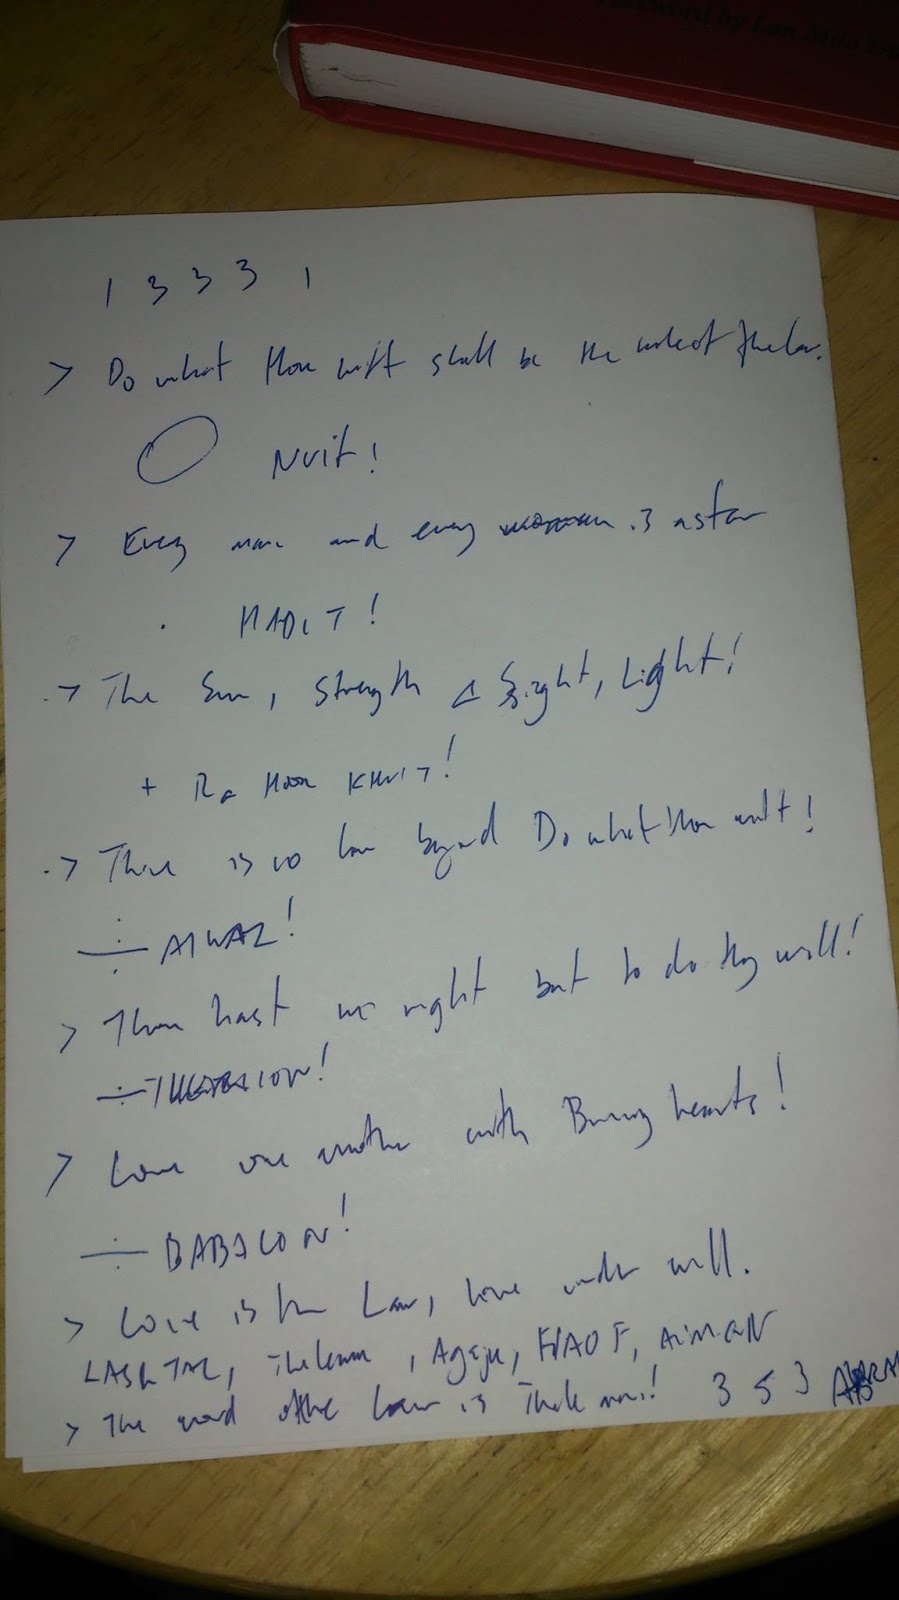 Foreword by Lon Milo Du
1 3 3 3 1
> Do what thou wilt shall be the whole of the law.
NUiT!
> Every man and every woman is a star
. HADiT!
.> The Sun, Strength & Sight, Light!
+ Ra Hoor KHUiT!
.> There is no law beyond Do what thou wilt!
÷ AIWAZ!
> Thou hast no right but to do thy will!
÷ THERION!
> Love one another with Burning hearts!
÷ BABALON!
> Love is the Law, love under will.
LASHTAL, Thelema, Agape, FIAOF, AUMGN
> The word of the Law is Thelema! 3 5 3 ABRA